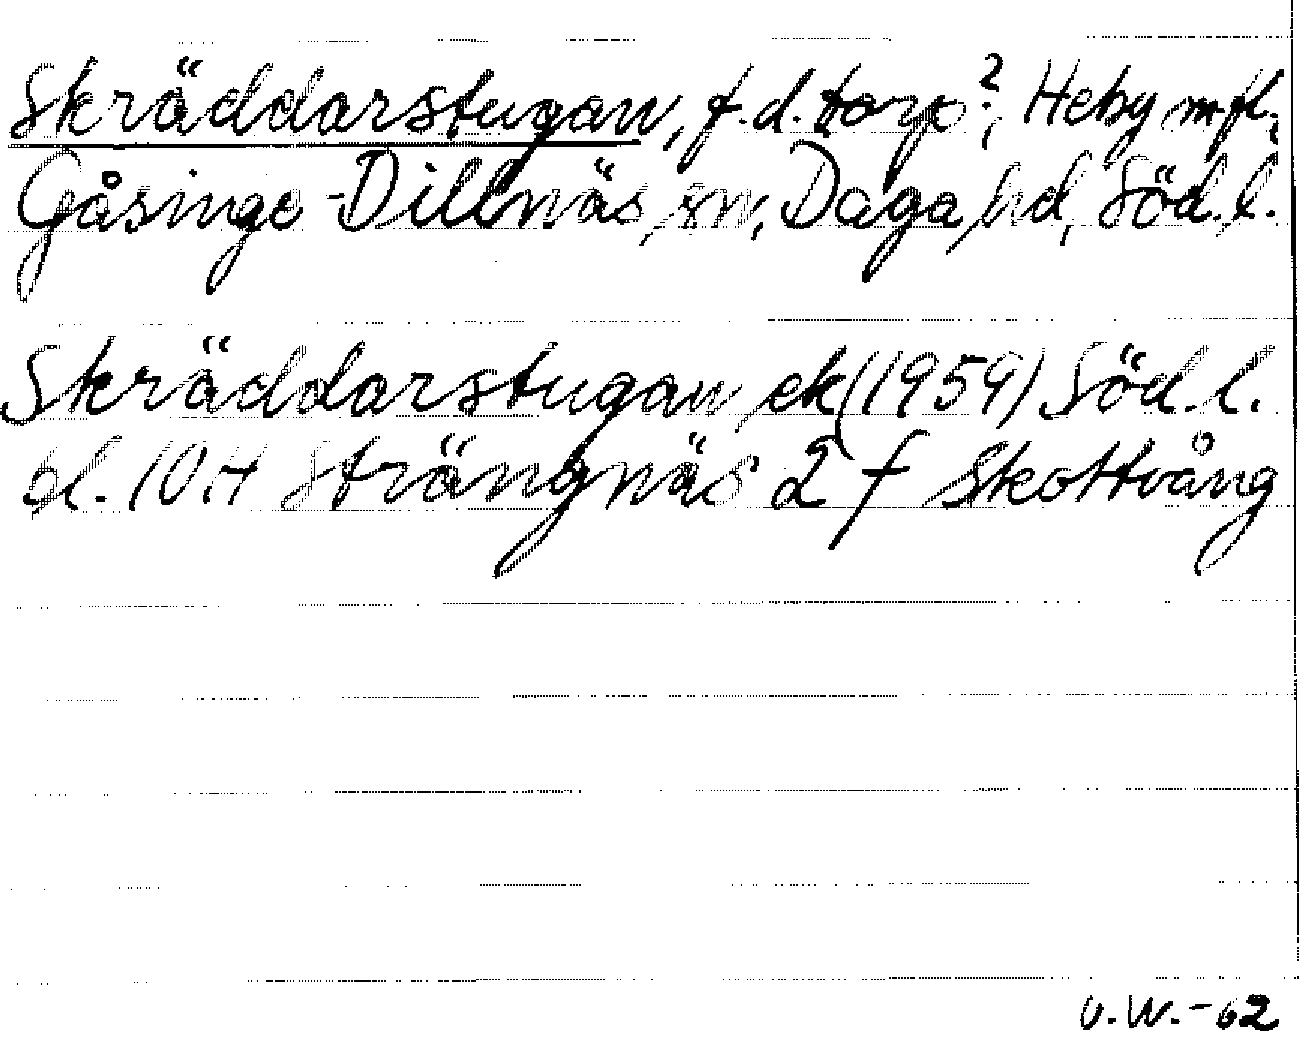 Skräddarstugan, f.d. torp?, Heby m.fl.,
Gåsinge-Dillnäs sn, Daga hd, Söd. l.
Skräddarstugan ek (1959) Söd. l.
bl. 10H Strängnäs 2 f Skottvång
U.W.-62